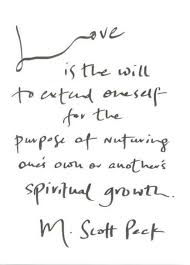 Love
is the will
to extend oneself
for the
purpose of nuturing
one's own or another's
spiritual growth.
M. Scott Peck